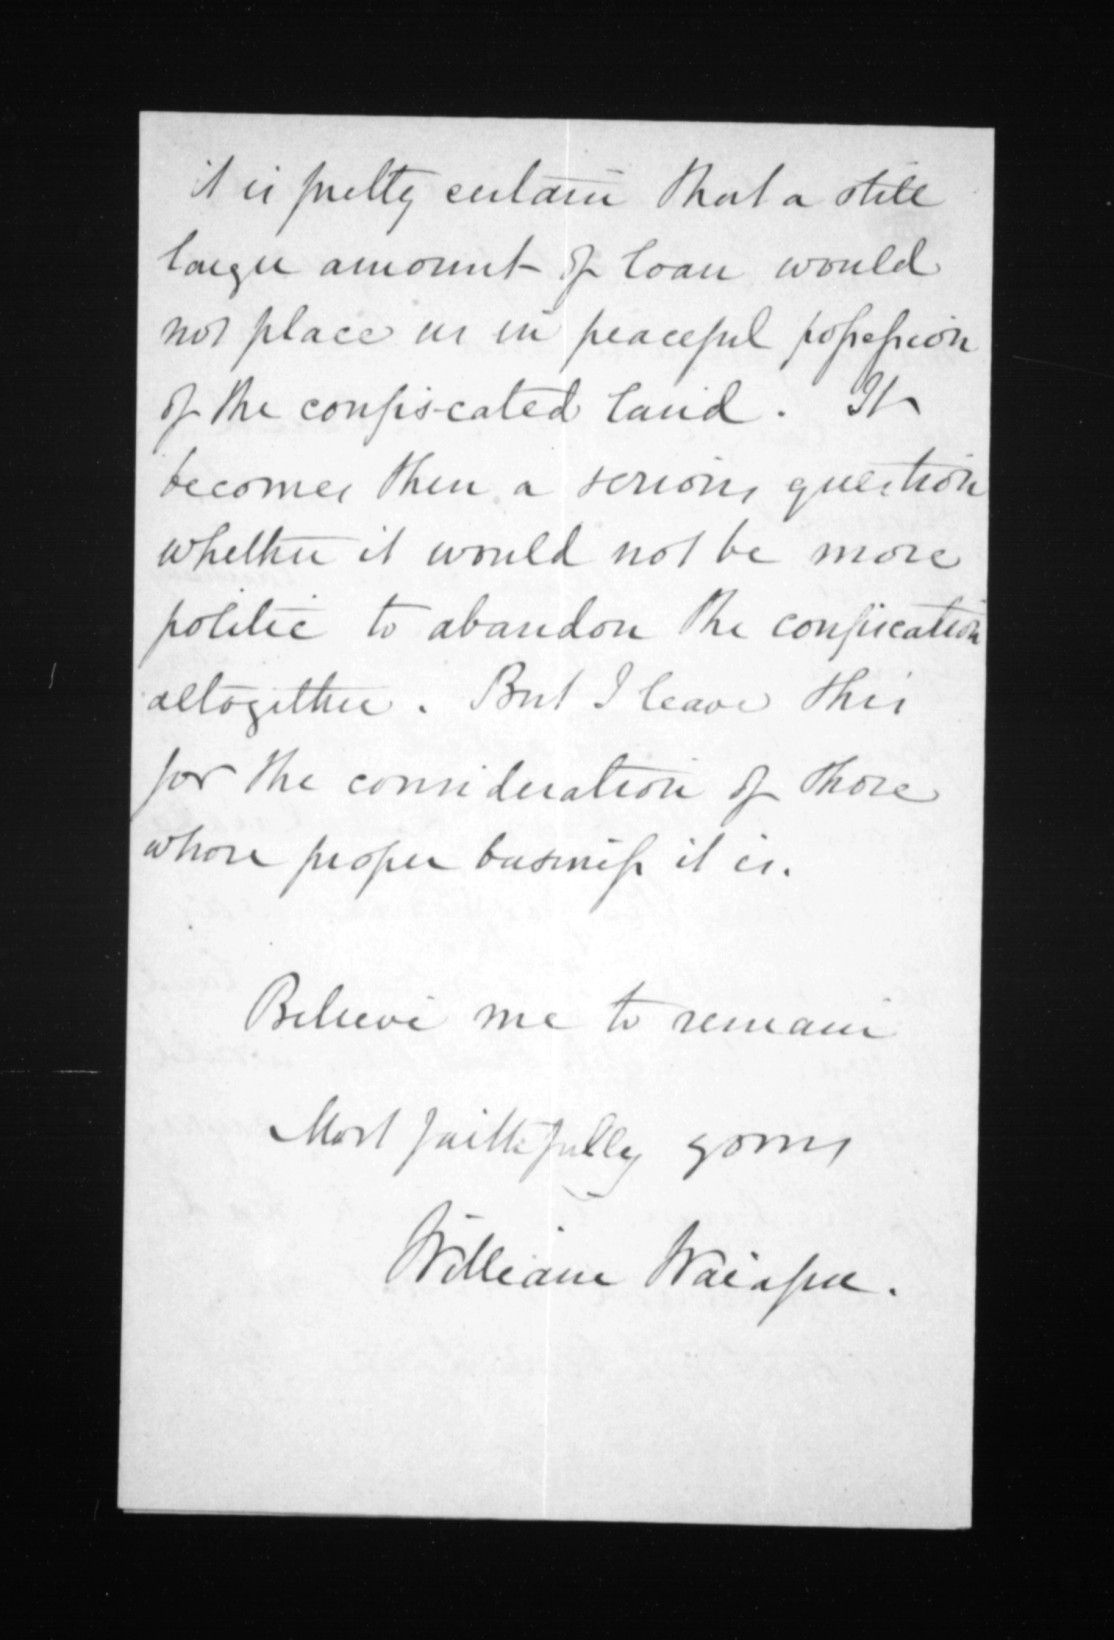 it is pretty certain that a still
larger amount of loan would
not place us in peaceful possession
of the confis-cated land. It
becomes then a serious question
whether it would not be more
politic to abandon the confiscation
altogether. But I leave this
for the consideration of those
whose proper business it is.
Believe me to remain
Most faithfully yours
William Waiapu.